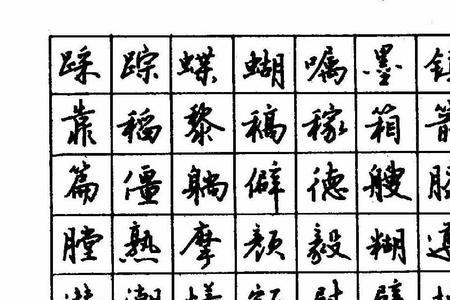 踩踪蝶蝴嘱墨
靠稻黎稿稼箱箭
篇僵躺僻德艘膝
膛熟摩颜毅糊遵
潮